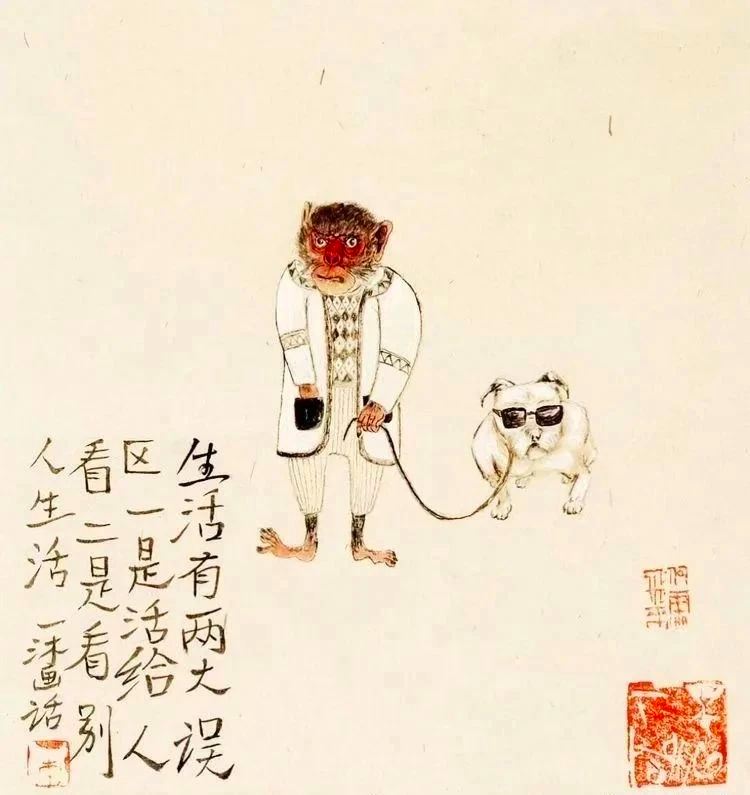 生活有两大误
区一是活给人
看二是看别
人生活 一沐画话